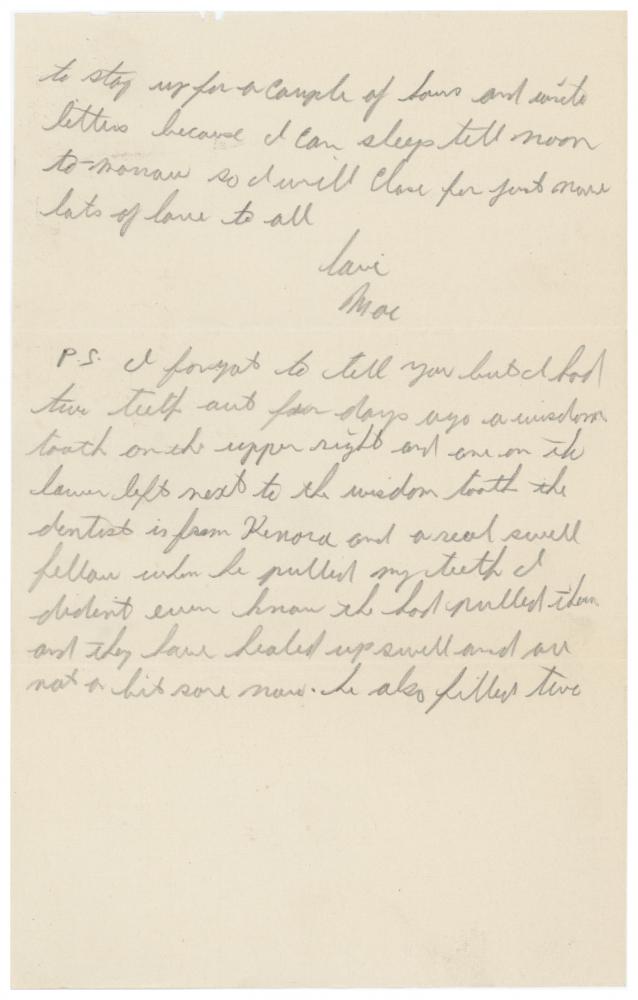 to stay up for a couple of hours and write
letters because I can sleep till noon
to-morrow so I will close for just now
lots of love to all
love
Moe
P.S. I forgot to tell you but I had
two teeth out four days ago a wisdom
tooth on the upper right and one on the
lower left next to the wisdom tooth the
dentist is from Kenora and a real swell
fellow when he pulled my teeth I
dident even know he had pulled them
and they have healed up swell and are
not a bit sore now. he also filled two